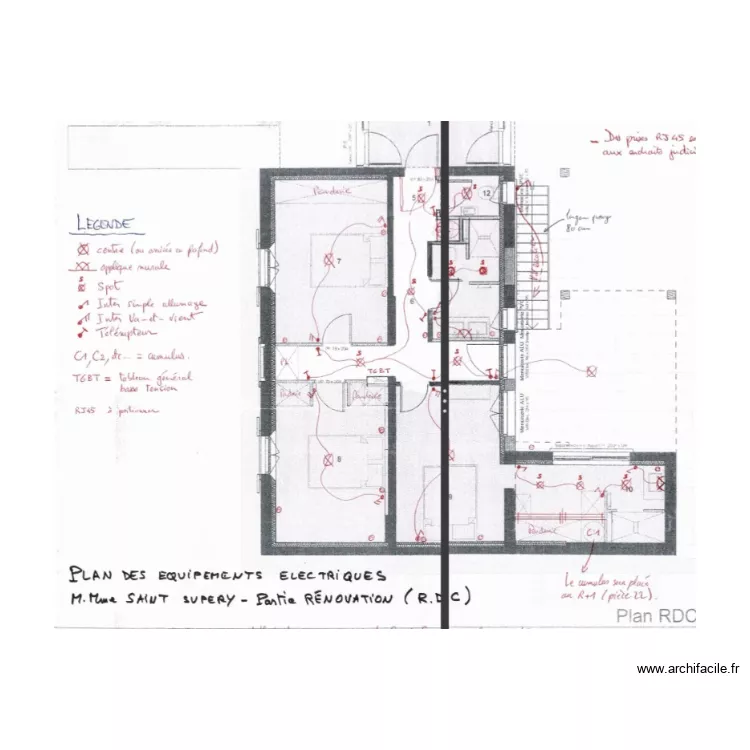 - Des prises RJ45
aux endroits
LEGENDE
centre (ou arrivée au plafond)
applique murale
Spot
Inter simple allumage
Inter Va-et-vient
Télérupteur
C1, C2, etc... = cumulus.
TGBT = tableau général
basse tension
RJ45 à positionner
Penderie
12
5
7
6
TGBT
Penderie
8
9
10
Penderie
C1
PLAN DES EQUIPEMENTS ELECTRIQUES
M. Mme SAINT SUPERY - Partie RÉNOVATION (R.D.C)
Le cumulus sera placé
au R+1 (pièce 22).
Plan RDC
www.archifacile.fr